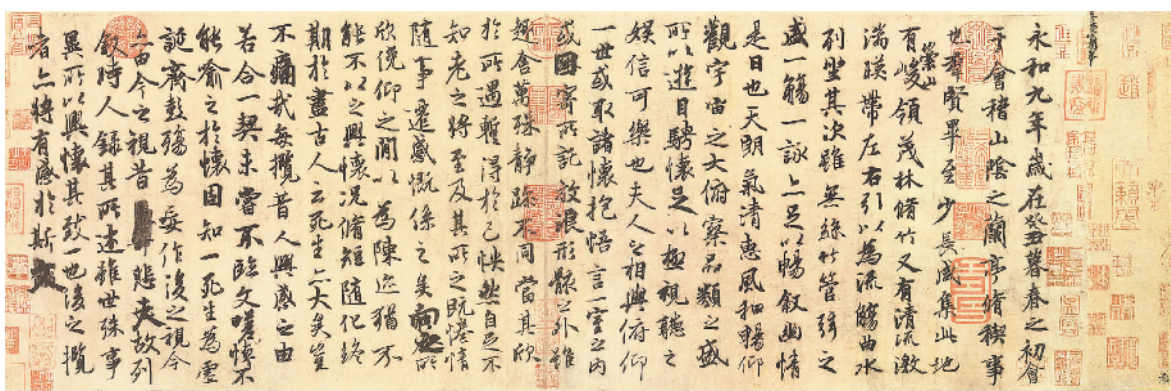 永和九年歲在癸丑暮春之初會
于會稽山陰之蘭亭脩稧事
也羣賢畢至少長咸集此地
有崇山峻領茂林脩竹又有清流激
湍暎帶左右引以為流觴曲水
列坐其次雖無絲竹管弦之
盛一觴一詠亦足以暢敘幽情
是日也天朗氣清惠風和暢仰
觀宇宙之大俯察品類之盛
所以遊目騁懷足以極視聽之
娛信可樂也夫人之相與俯仰
一世或取諸懷抱悟言一室之內
或因寄所託放浪形骸之外雖
趣舍萬殊静躁不同當其欣
於所遇暫得於己怏然自足不
知老之將至及其所之既惓情
隨事遷感慨係之矣向之所
欣俛仰之閒以為陳迹猶不
能不以之興懷況脩短隨化終
期於盡古人云死生亦大矣豈
不痛哉每攬昔人興感之由
若合一契未嘗不臨文嗟悼不
能喻之於懷固知一死生為虛
誕齊彭殤為妄作後之視今
亦由今之視昔悲夫故列
敘時人錄其所述雖世殊事
異所以興懷其致一也後之攬
者亦將有感於斯文